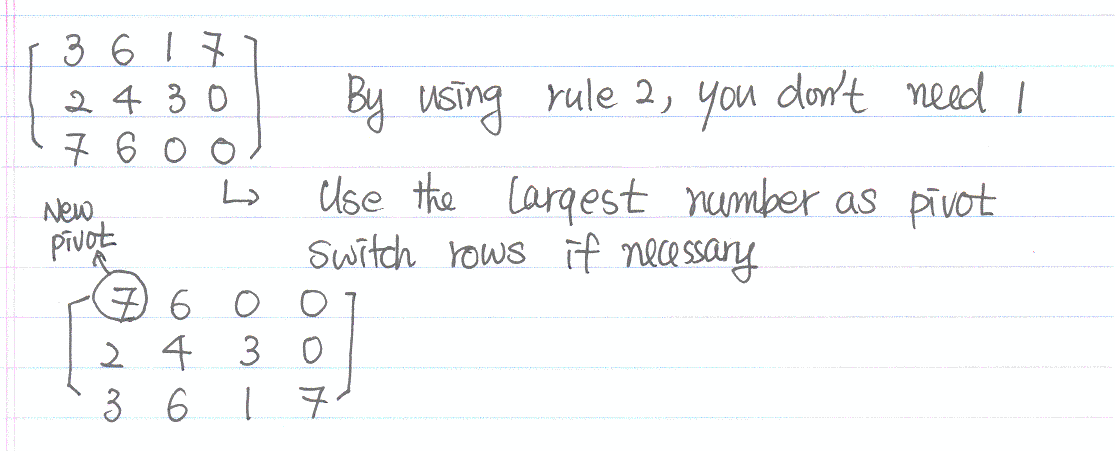 3 6 1 7
2 4 3 0
7 6 0 0
By using rule 2, you don't need 1
↳ Use the largest number as pivot
switch rows if necessary
New
pivot
7 6 0 0
2 4 3 0
3 6 1 7